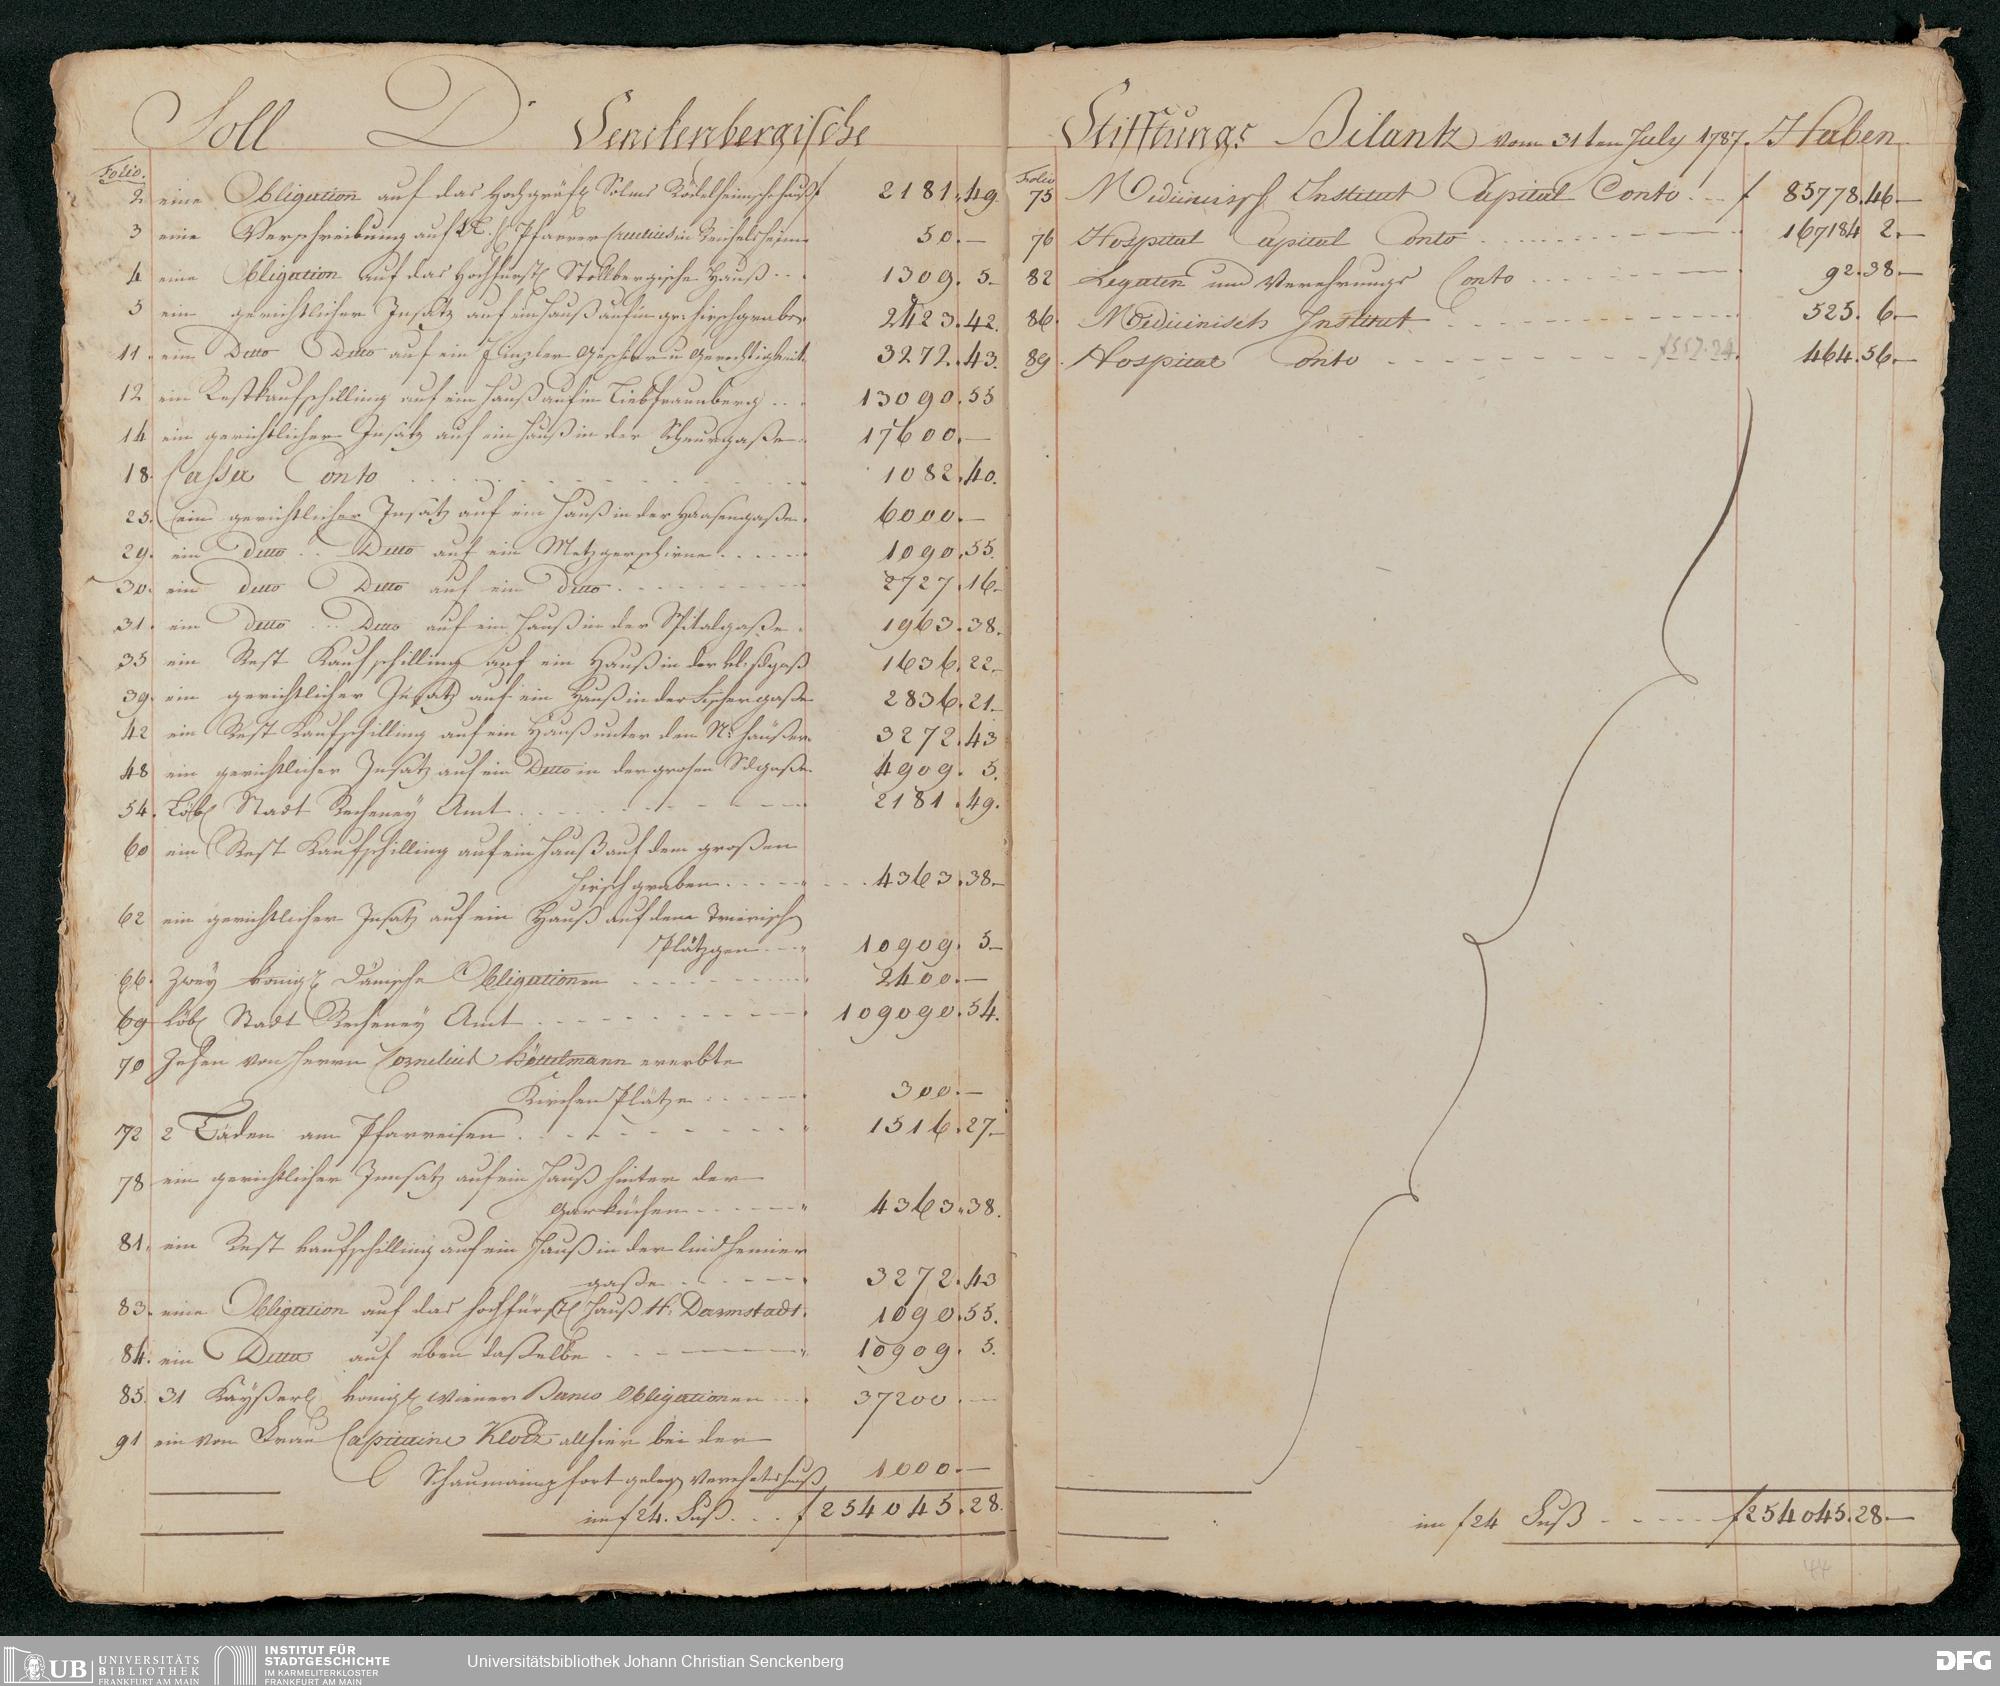 Soll Dr. Senckenbergische
Folio.
2 eine Obligation auf das Hochgräfl. Solms Rödelheimische Hauß f 2181.49.
3 eine Verschreibung auf Pfarrer in Reichelsheim 50.—
4 eine Obligation auf das Hochfürstl. Stollbergische Hauß 1309. 5.
5 ein gerichtlicher Insatz auf ein Hauß auf'm gr. Hirschgraben 2423.42.
11. ein Ditto Ditto auf ein u. Gerechtigkeit 3272.43.
12 ein Restkaufschilling auf ein Hauß auf'm Liebfrauenberg 13090.55
14 ein gerichtlicher Insatz auf ein Hauß in der Schnurgaße 17600.—
18. Cassa Conto 1082.40.
25. ein gerichtlicher Insatz auf ein Hauß in der Haasengaße 6000.—
29. ein Ditto Ditto auf ein Metzgerschirne 1090.55.
30. ein Ditto Ditto auf ein Ditto 2727.16.
31. ein Ditto Ditto auf ein Hauß in der Spitalgaße 1963.38.
35 ein Rest Kaufschilling auf ein Hauß in der kl. 1636.22.
39. ein gerichtlicher Insatz auf ein Hauß in der Fischergaße 2836.21.
42 ein Rest Kaufschilling auf ein Hauß unter den N. Häußer 3272.43
48 ein gerichtlicher Insatz auf ein Ditto in der grosen 4909. 5.
54. Löbl. Stadt Recheney Amt 2181.49.
60 ein Rest Kaufschilling auf ein Hauß auf dem großen
Hirschgraben 4363.38.
62 ein gerichtlicher Insatz auf ein Hauß auf dem Trierisch
Plätzgen 10909. 5.
66. Zwey königl. Dänische Obligationen 2400.—
69 Löbl. Stadt Recheney Amt 109090.54.
70 Zehen von Herrn Cornelius ererbte
Kirchen Plätze 300.—
72 2 Läden am Pfarreisen 1516.27.
78 ein gerichtlicher Innsatz auf ein Hauß hinter der
Garküchen 4363.38.
81. ein Rest Kaufschilling auf ein Hauß in der Lindheimer
gaße 3272.43
83. eine Obligation auf das Hochfürstl. Hauß H. Darmstadt. 1090.55.
84. ein Ditto auf eben daßelbe 10909. 5.
85. 31 Kayßerl. königl. Wiener Banco Obligationen 37200.—
91 ein von Frau Capitaine Klotz allhier bei der
Schaumainpfort geleg. Hauß 1000.—
im f 24. Fuß f 254045.28.
Stifftungs Bilantz vom 31ten July 1787. Haben
Folio
75 Medicinisch Institut Capital Conto f 85778.46.—
76 Hospital Capital Conto 167184 2.—
82 Legaten und Verehrungs Conto 92.38.—
86. Medicinisch Institut 525. 6.—
89. Hospital Conto 464.56.—
im f 24 Fuß f 254045.28.—
44
UB UNIVERSITÄTS
BIBLIOTHEK
FRANKFURT AM MAIN
INSTITUT FÜR
STADTGESCHICHTE
IM KARMELITERKLOSTER
FRANKFURT AM MAIN
Universitätsbibliothek Johann Christian Senckenberg
DFG